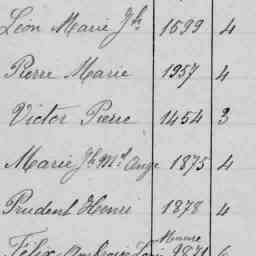 Léon Marie Jh 1599 4
Pierre Marie 1957 4
Victor Pierre 1454 3
Marie Jh Ml Ange 1875 4
Prudent Henri 1878 4
Félix